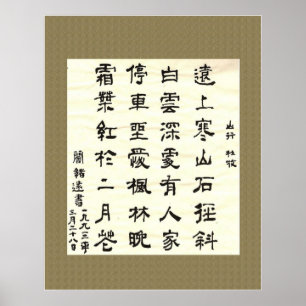 山行 杜牧
遠上寒山石徑斜
白雲深處有人家
停車坐愛楓林晚
霜葉紅於二月花
閻銘遠書
一九九三年
三月二十八日